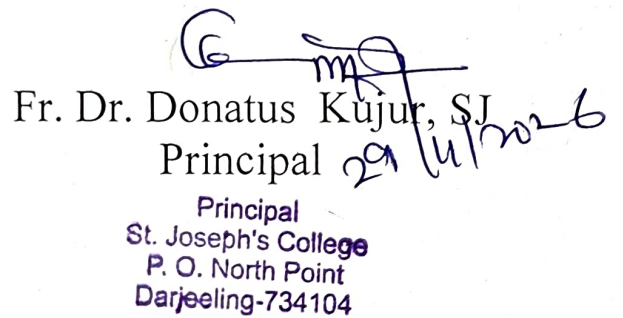 Fr. Dr. Donatus Kujur, SJ
Principal 29/4/2026
Principal
St. Joseph's College
P. O. North Point
Darjeeling-734104